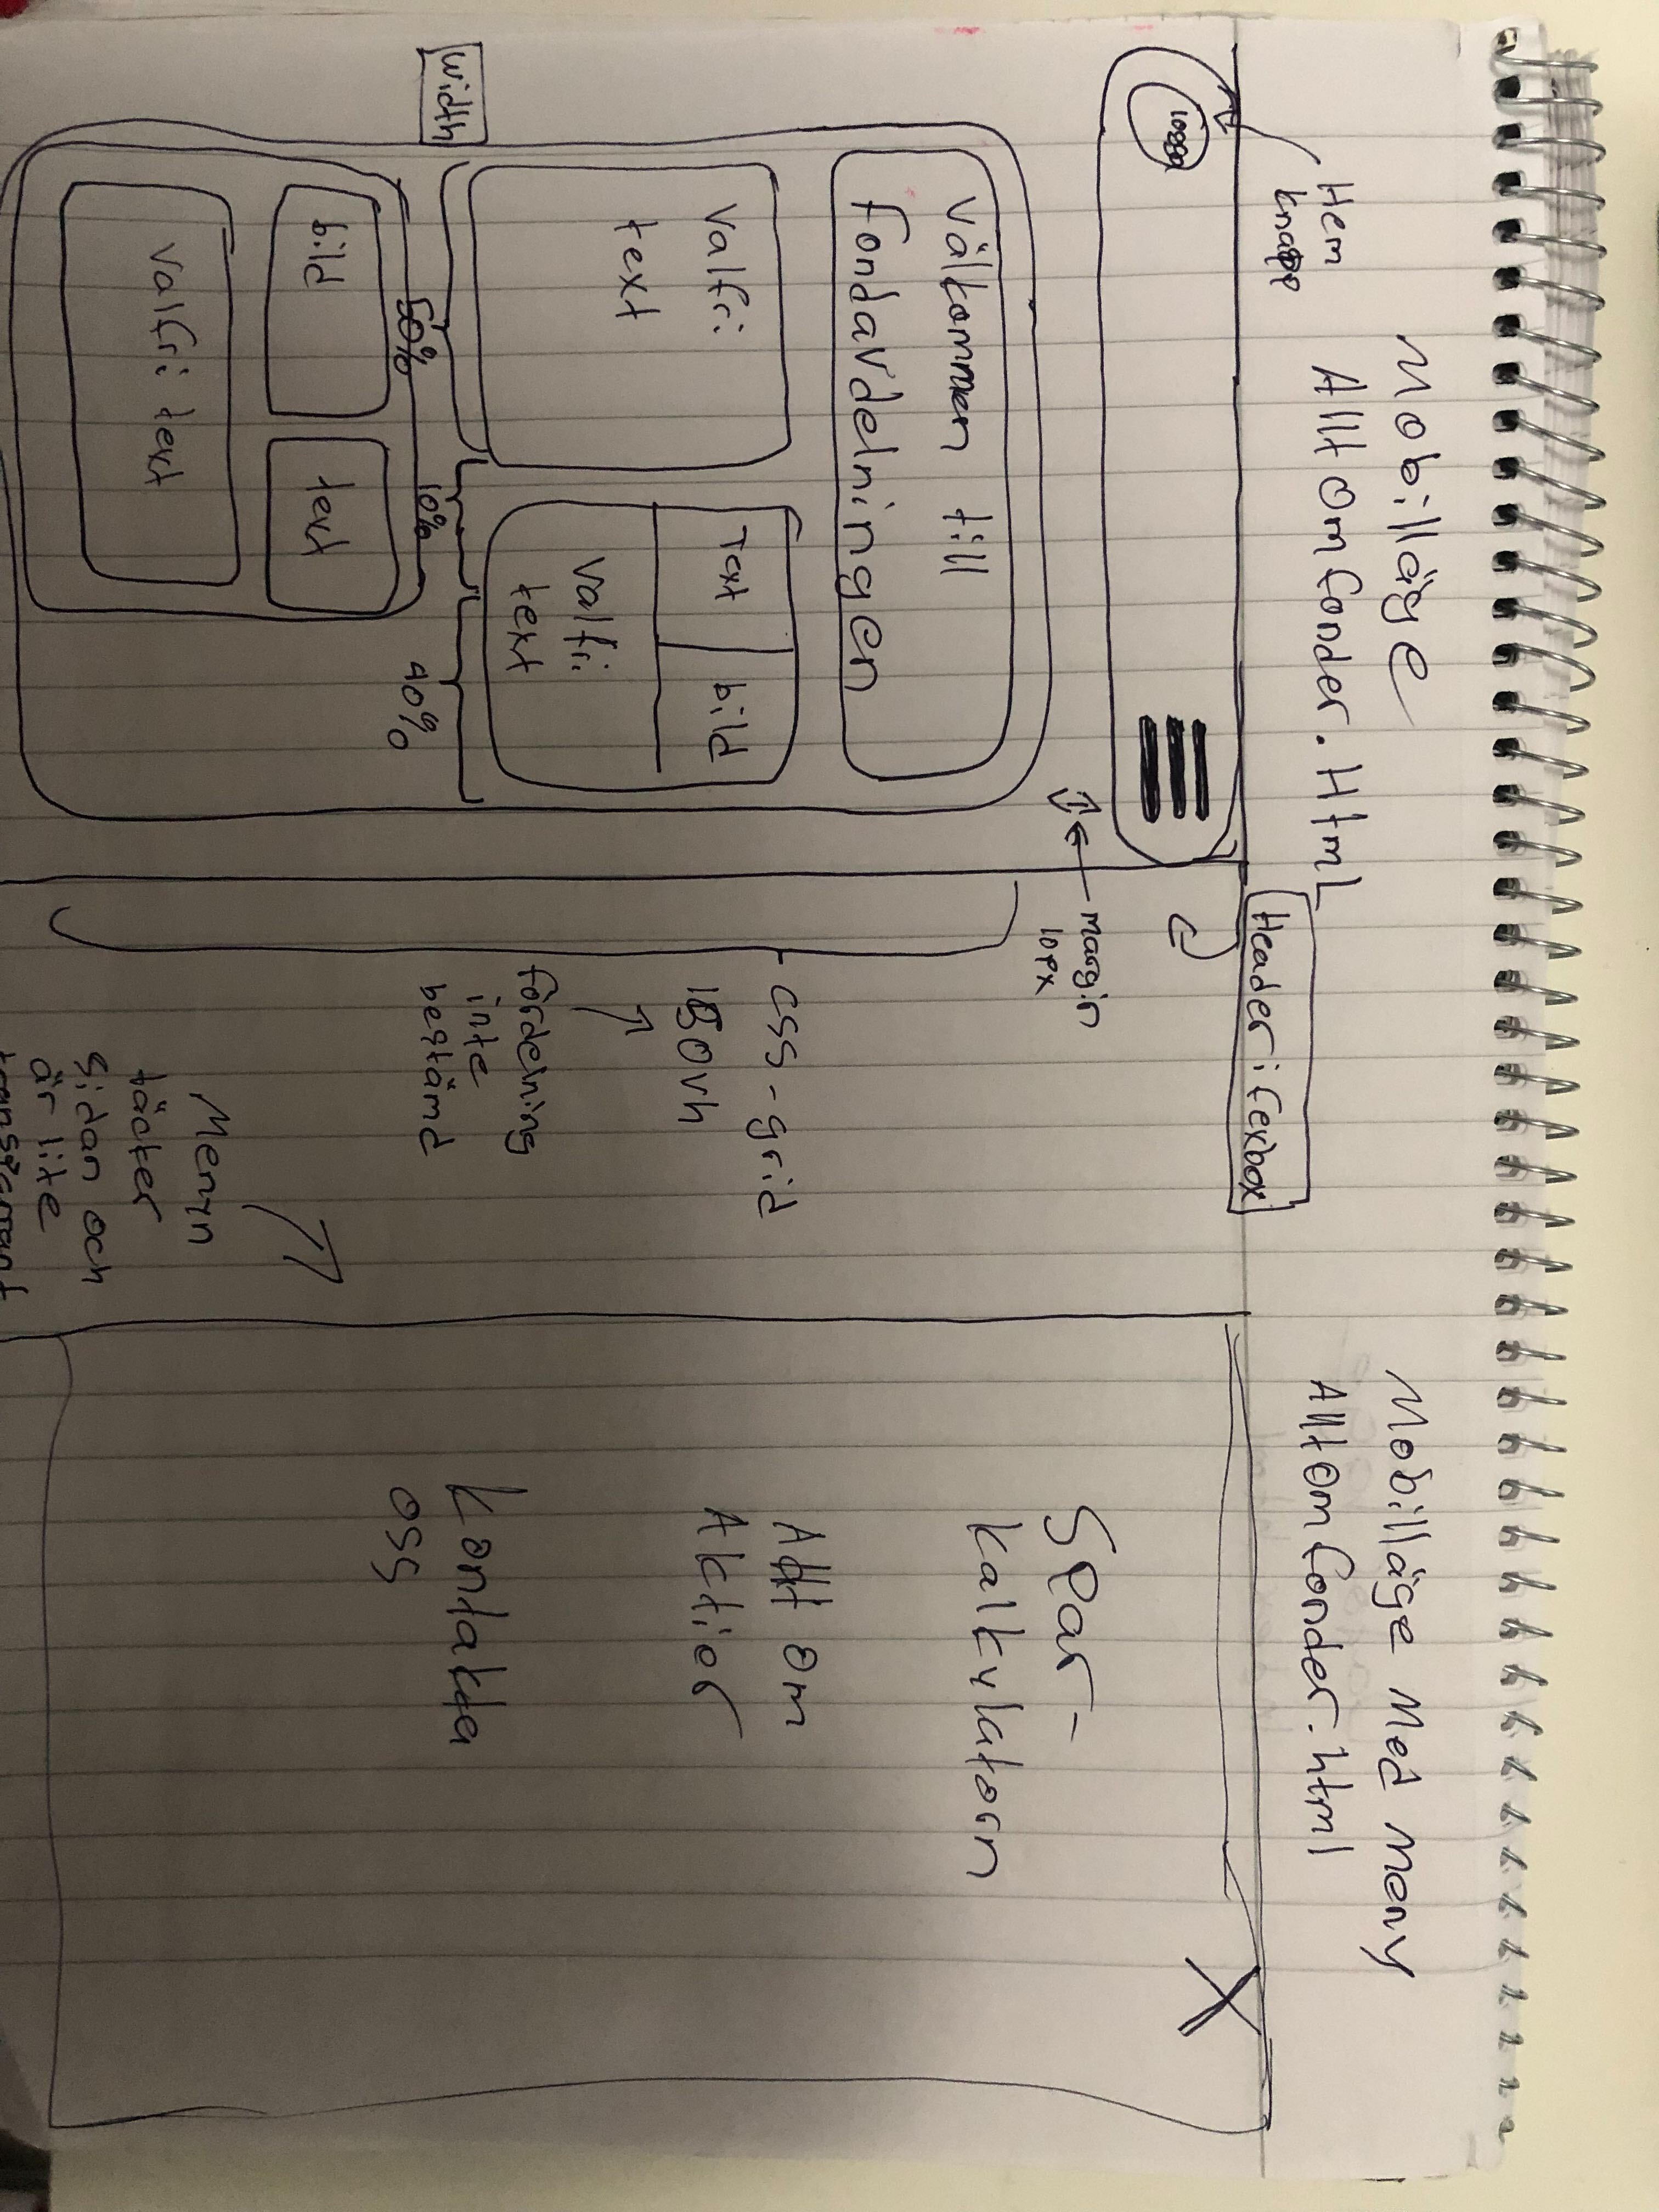 Mobilläge
AlltOmfonder.Html
Hem
knapp
logga
Header: fexbox
margin
10px
Välkommen till
fondavdelningen
Valfri
text
Text
bild
Valfri
text
width
50%
10%
40%
bild
text
Valfri text
css-grid
150vh
fördelning
inte
bestämd
Menyn
täcker
sidan och
är lite
transparant
Mobilläge med meny
AlltOmfonder.html
X
Spar-
kalkylatorn
Allt om
Aktior
Kontakta
oss